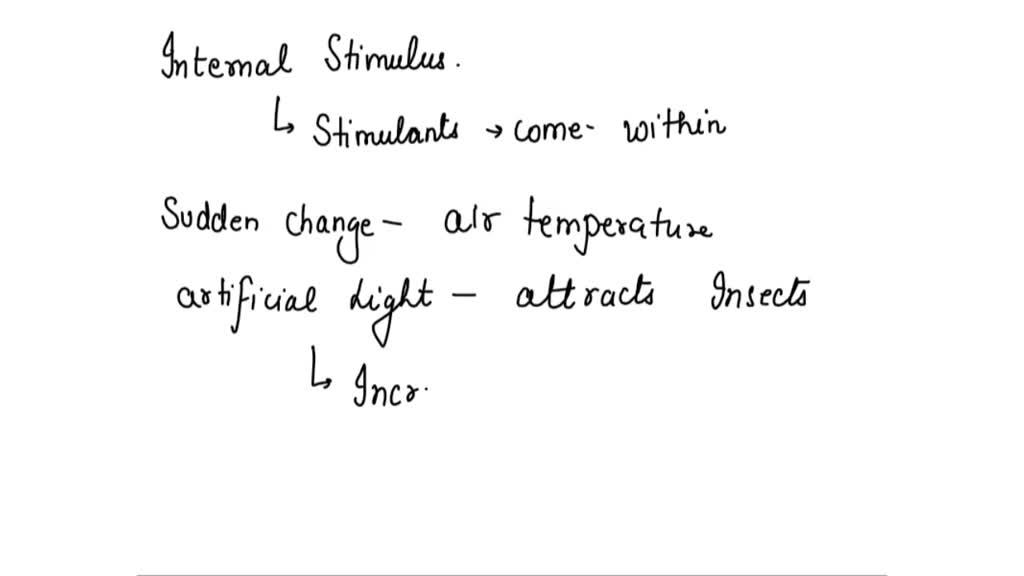 Internal Stimulus.
↳ Stimulants → come- within
Sudden change - air temperature
artificial light - attracts Insects
↳ Incr.